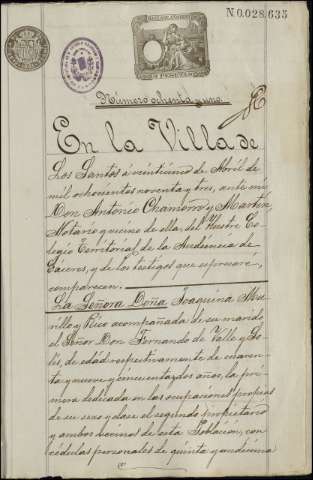 N 0.028,635
Número ochenta y uno.
En la Villa de
Los Santos á veintiuno de Abril de
mil ochocientos noventa y tres, ante mí
Don Antonio Chamorro y Martín,
Notario y vecino de ella, del Ilustre Co-
legio Territorial de la Audiencia de
Cáceres, y de los testigos que espresaré,
comparecen:
La Señora Doña Joaquina Mu-
rillo y Rico acompañada de su marido
el Señor Don Fernando de Valle y So-
lís, de edad respectivamente de cuaren-
ta y nueve y cincuenta y dos años, la pri-
mera dedicada en las ocupaciones propias
de su sexo y clase el segundo propietario
y ambos vecinos de esta Población, con
cédulas personales de quinta y undécima